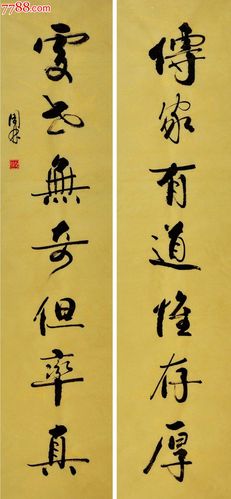 7788.com
傳家有道惟存厚
處世無奇但率真